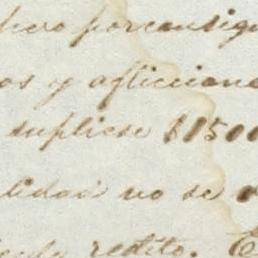 pero por consigu
os y afliccione
supliese $1500
lidad no se
redito.